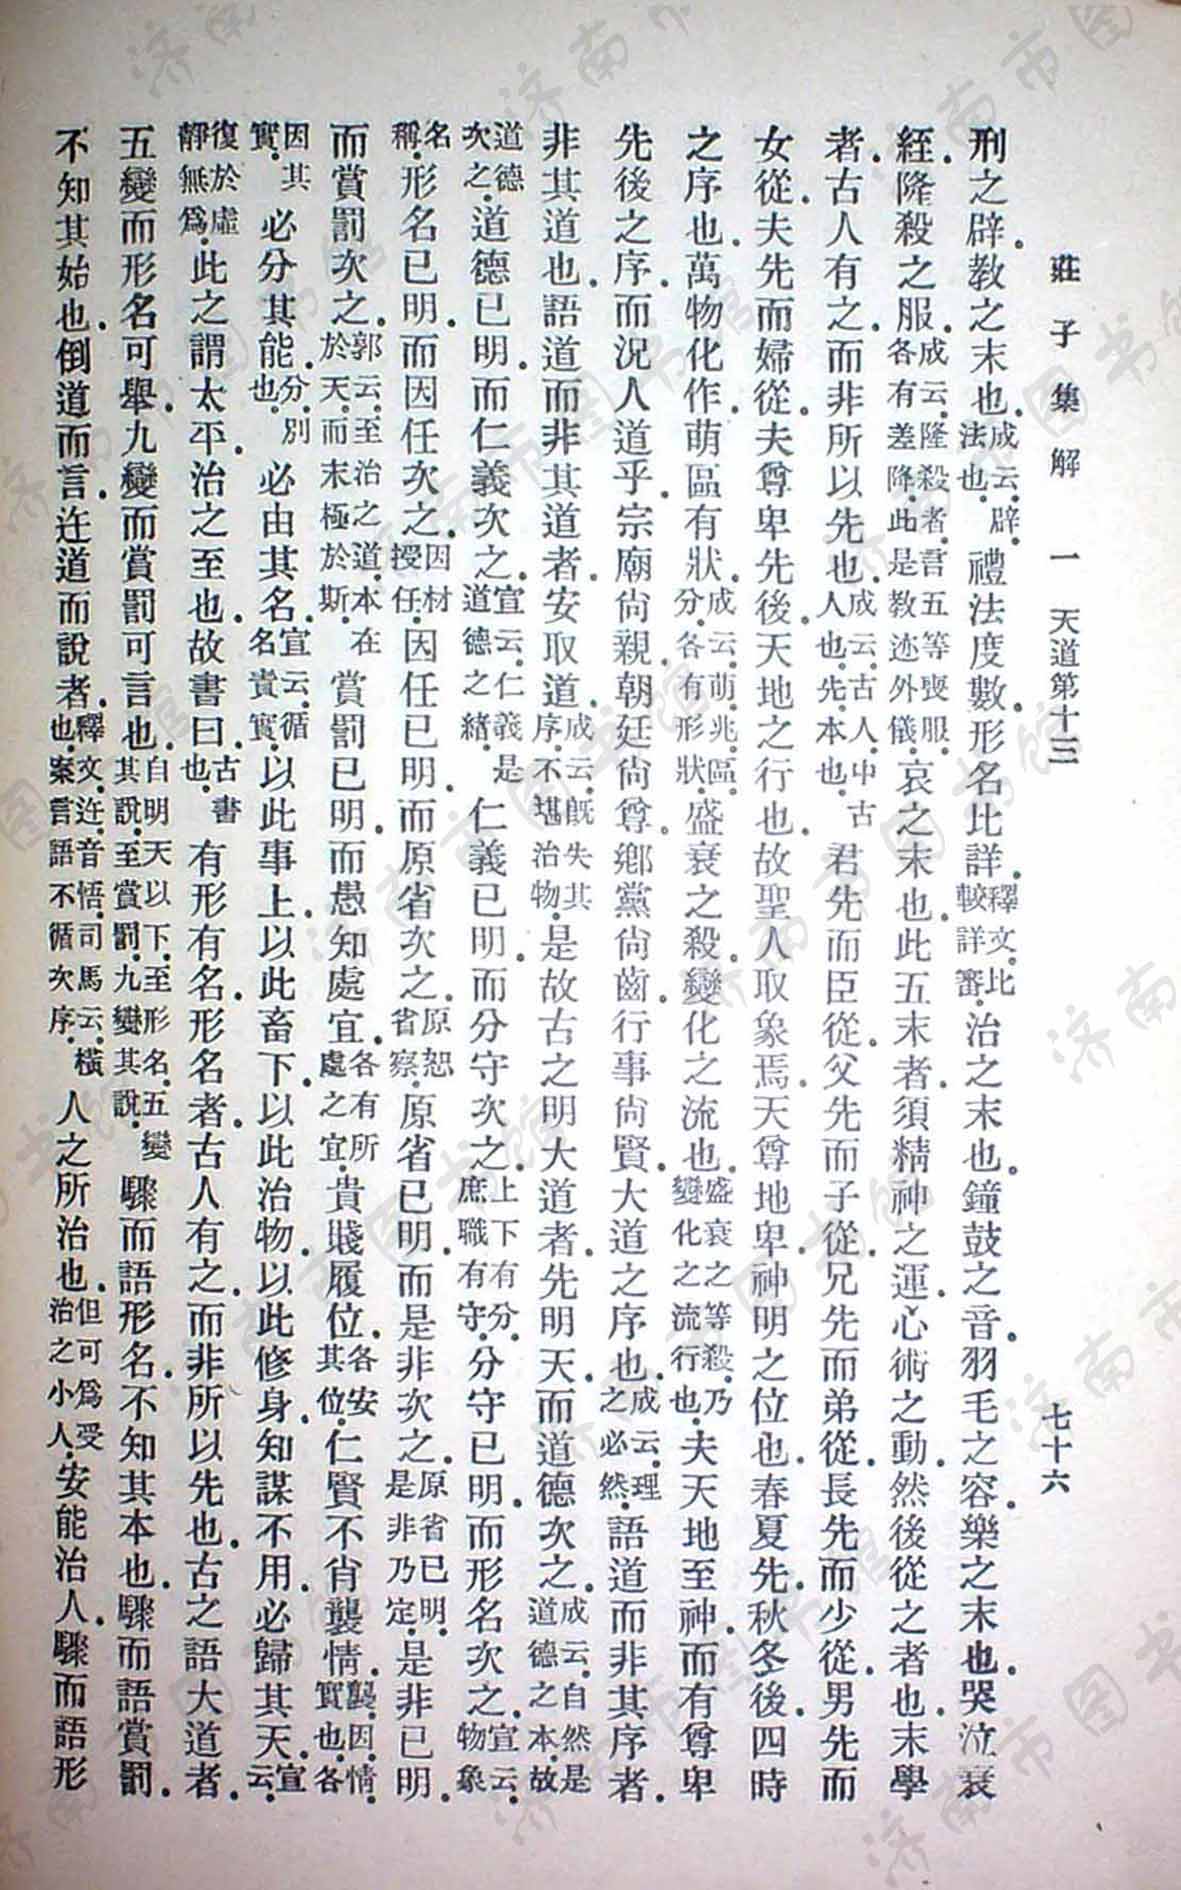 莊子集解　一　天道第十三　七十六
刑之辟。教之末也。成云。辟。法也。禮法度數。形名比詳。釋文。比較詳審。治之末也。鐘鼓之音。羽毛之容。樂之末也。哭泣衰
絰。隆殺之服。成云。隆殺者。言五等喪服。各有差降。此是教迹外儀。哀之末也。此五末者。須精神之運。心術之動。然後從之者也。末學
者。古人有之。而非所以先也。成云。古人。中古人也。先。本也。君先而臣從。父先而子從。兄先而弟從。長先而少從。男先而
女從。夫先而婦從。夫尊卑先後。天地之行也。故聖人取象焉。天尊地卑。神明之位也。春夏先。秋冬後。四時
之序也。萬物化作。萌區有狀。成云。萌。兆。區。分。各有形狀。盛衰之殺。變化之流也。盛衰之等殺。乃變化之流行也。夫天地至神。而有尊卑
先後之序。而況人道乎。宗廟尚親。朝廷尚尊。鄉黨尚齒。行事尚賢。大道之序也。成云。理之必然。語道而非其序者。
非其道也。語道而非其道者。安取道。成云。既失其序。不堪治物。是故古之明大道者。先明天。而道德次之。成云。自然是道德之本。故
道德次之。道德已明。而仁義次之。宣云。仁義是道德之緒。仁義已明。而分守次之。上下有分。庶職有守。分守已明。而形名次之。宣云。物象
名稱。形名已明。而因任次之。因材授任。因任已明。而原省次之。原恕省察。原省已明。而是非次之。原省已明。是非乃定。是非已明。
而賞罰次之。郭云。至治之道。本在於天。而末極於斯。賞罰已明。而愚知處宜。各有所處之宜。貴賤履位。各安其位。仁賢不肖襲情。襲。因。情。實也。各
因其實。必分其能。分。別也。必由其名。宣云。循名責實。以此事上。以此畜下。以此治物。以此修身。知謀不用。必歸其天。宣云。
復於虛靜無爲。此之謂太平。治之至也。故書曰。古書也。有形有名。形名者。古人有之。而非所以先也。古之語大道者。
五變而形名可舉。九變而賞罰可言也。自明天以下。至形名。五變其說。至賞罰。九變其說。驟而語形名。不知其本也。驟而語賞罰。
不知其始也。倒道而言。迕道而說者。釋文。迕音悟。司馬云。橫也。案言語不循次序。人之所治也。但可爲受治之小人。安能治人。驟而語形